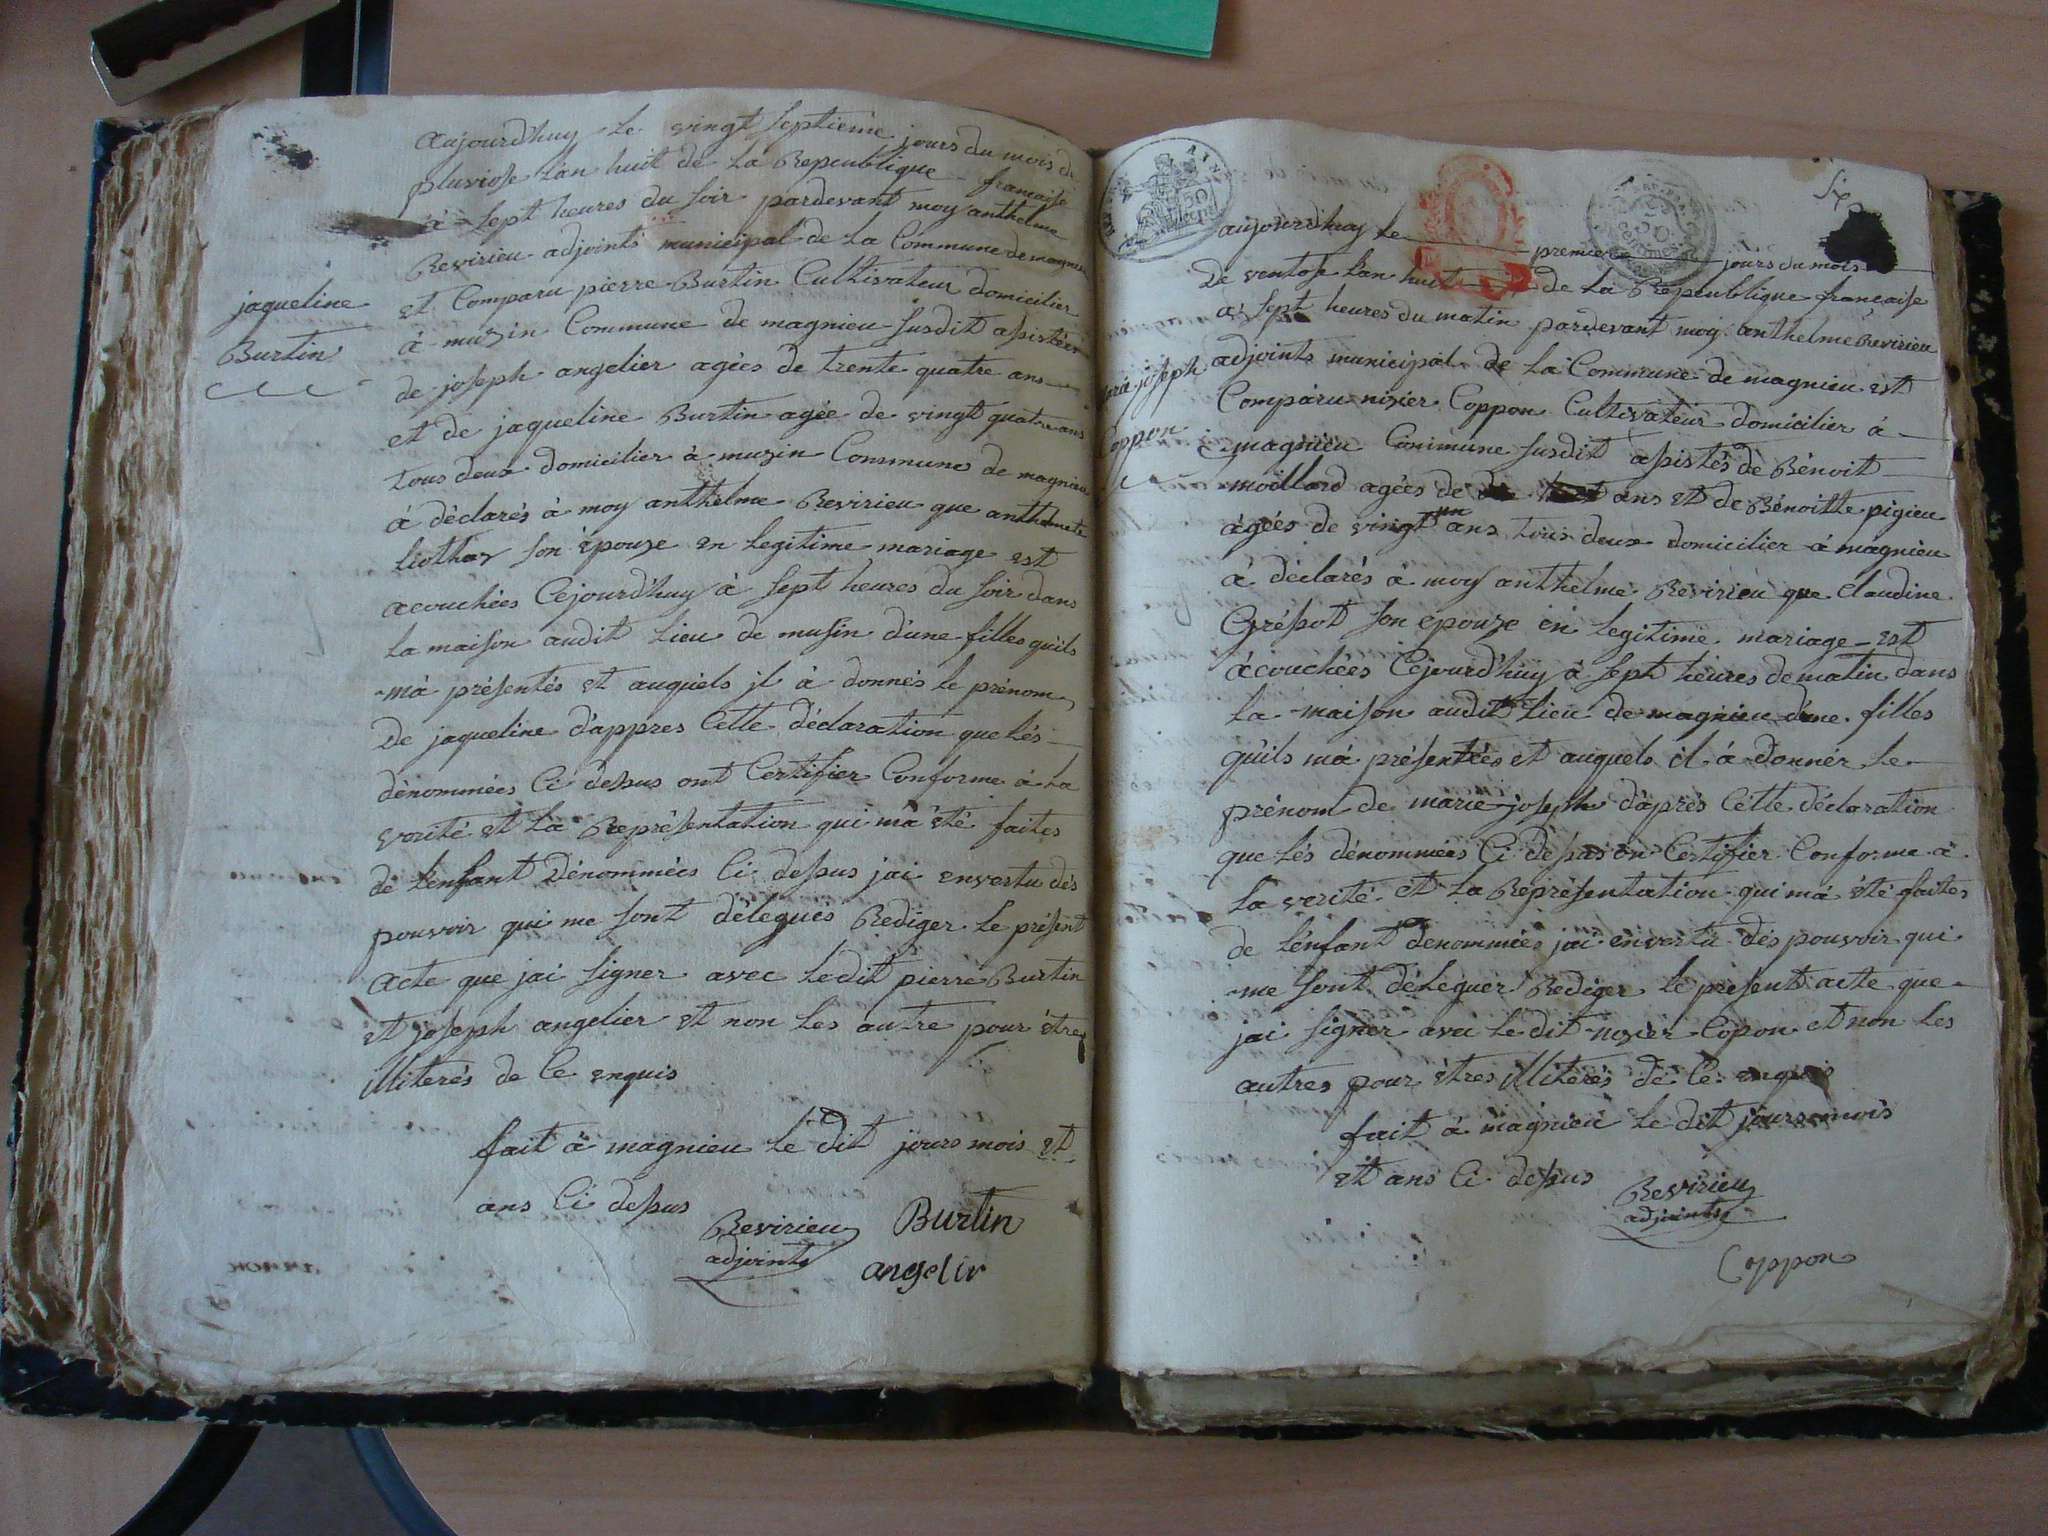 aujourd'huy le vingt septieme jours du mois de
pluviose lan huit de la Republique francaise
à sept heures du soir pardevant moy anthelme
Revirieu adjoints municipal de la Commune de magnieu
et Comparu pierre Burtin Cultivateur domicilier
à muzin Commune de magnieu susdit assistées
de joseph angelier agées de trente quatre ans
et de jaqueline Burtin agée de vingt quatre ans
tous deux domicilier à muzin Commune de magnieu
à déclarés à moy anthelme Revirieu que anthelmete
son épouze en legitime mariage est
acouchées Cejourd'huy à sept heures du soir dans
la maison audit lieu de musin d'une filles quils
má présentés et auquels jl à donnés le prénom
De jaqueline d'appres Cette déclaration que lés
dénommées Ci dessus ont Certifier Conforme à la
verité et la Représentation qui má été faites
de l'enfant Dénommées Ci dessus jai envertu dés
pouvoir qui me sont délegués Rediger le présent
acte que jai signer avec ledit pierre Burtin
et joseph angelier et non les autre pour être
illiterés de Ce enquis
fait à magnieu le dit jours mois et
ans Ci dessus
Revirieu
adjoints
Burtin
angelir
jaqueline
Burtin
Six
50
aujourd'huy le premier jours du mois
de ventose lan huit de la Republique française
à sept heures du matin pardevant moy anthelme Revirieu
adjoints municipal de la Commune de magnieu est
Comparu nizier Coppon Cultivateur domicilier à
magnieu Commune susdit assistés de Bénoit
moillard agées de ans et de Bénoitte pigieu
àgées de vingt un ans tous deux domicilier à magnieu
à déclarés à moy anthelme Revirieu que Claudine
Grépot son epouze en legitime mariage est
àcouchées Cejourd'huy à sept heures de matin dans
la maison audit lieu de magnieu d'une filles
quils má présentées et auquels il à donnér le
prénom de marie joseph d'après Cette déclaration
que lés dénommées Ci dessus on Certifier Conforme à
la verité et la Représentation qui má été faites
de l'énfant denommées jai envertu dés pouvoir qui
me sont déleguer Rediger le présent acte que
jai signer avec le dit nizier Copon et non les
autres pour êtres illiterés de Ce enquis
fait à magnieu le dit jours mois
et ans Ci dessus
Revirieu
adjoints
Coppon
joseph
Coppon